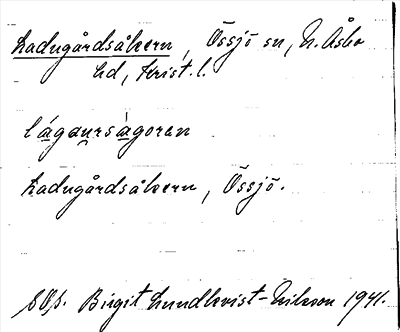 Ladugårdsåkern, Össjö sn, N. Åsbo
hd, Krist. l.
lágaursàgoren
Ladugårdsåkern, Össjö.
Birgit Lundkvist-Nilsson 1941.